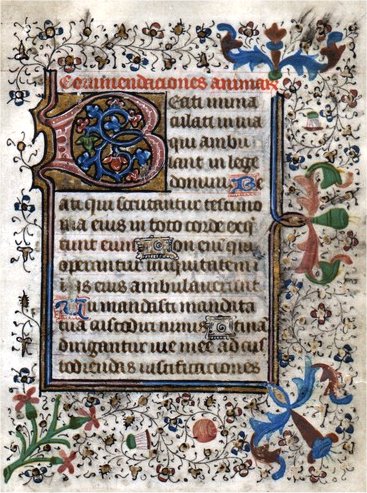 Commendaciones animar
Beati inma
culati in uia
qui ambu
lant in lege
domini Be
ati qui scrutantur testimo
nia eius in toto corde exq
runt eum Non eni qui
operantur iniquitatem
in uiis eius ambulauerunt
Tu mandasti mandata
tua custodiri nimis Utina
dirigantur uie mee ad cus
todiendas iustificaciones